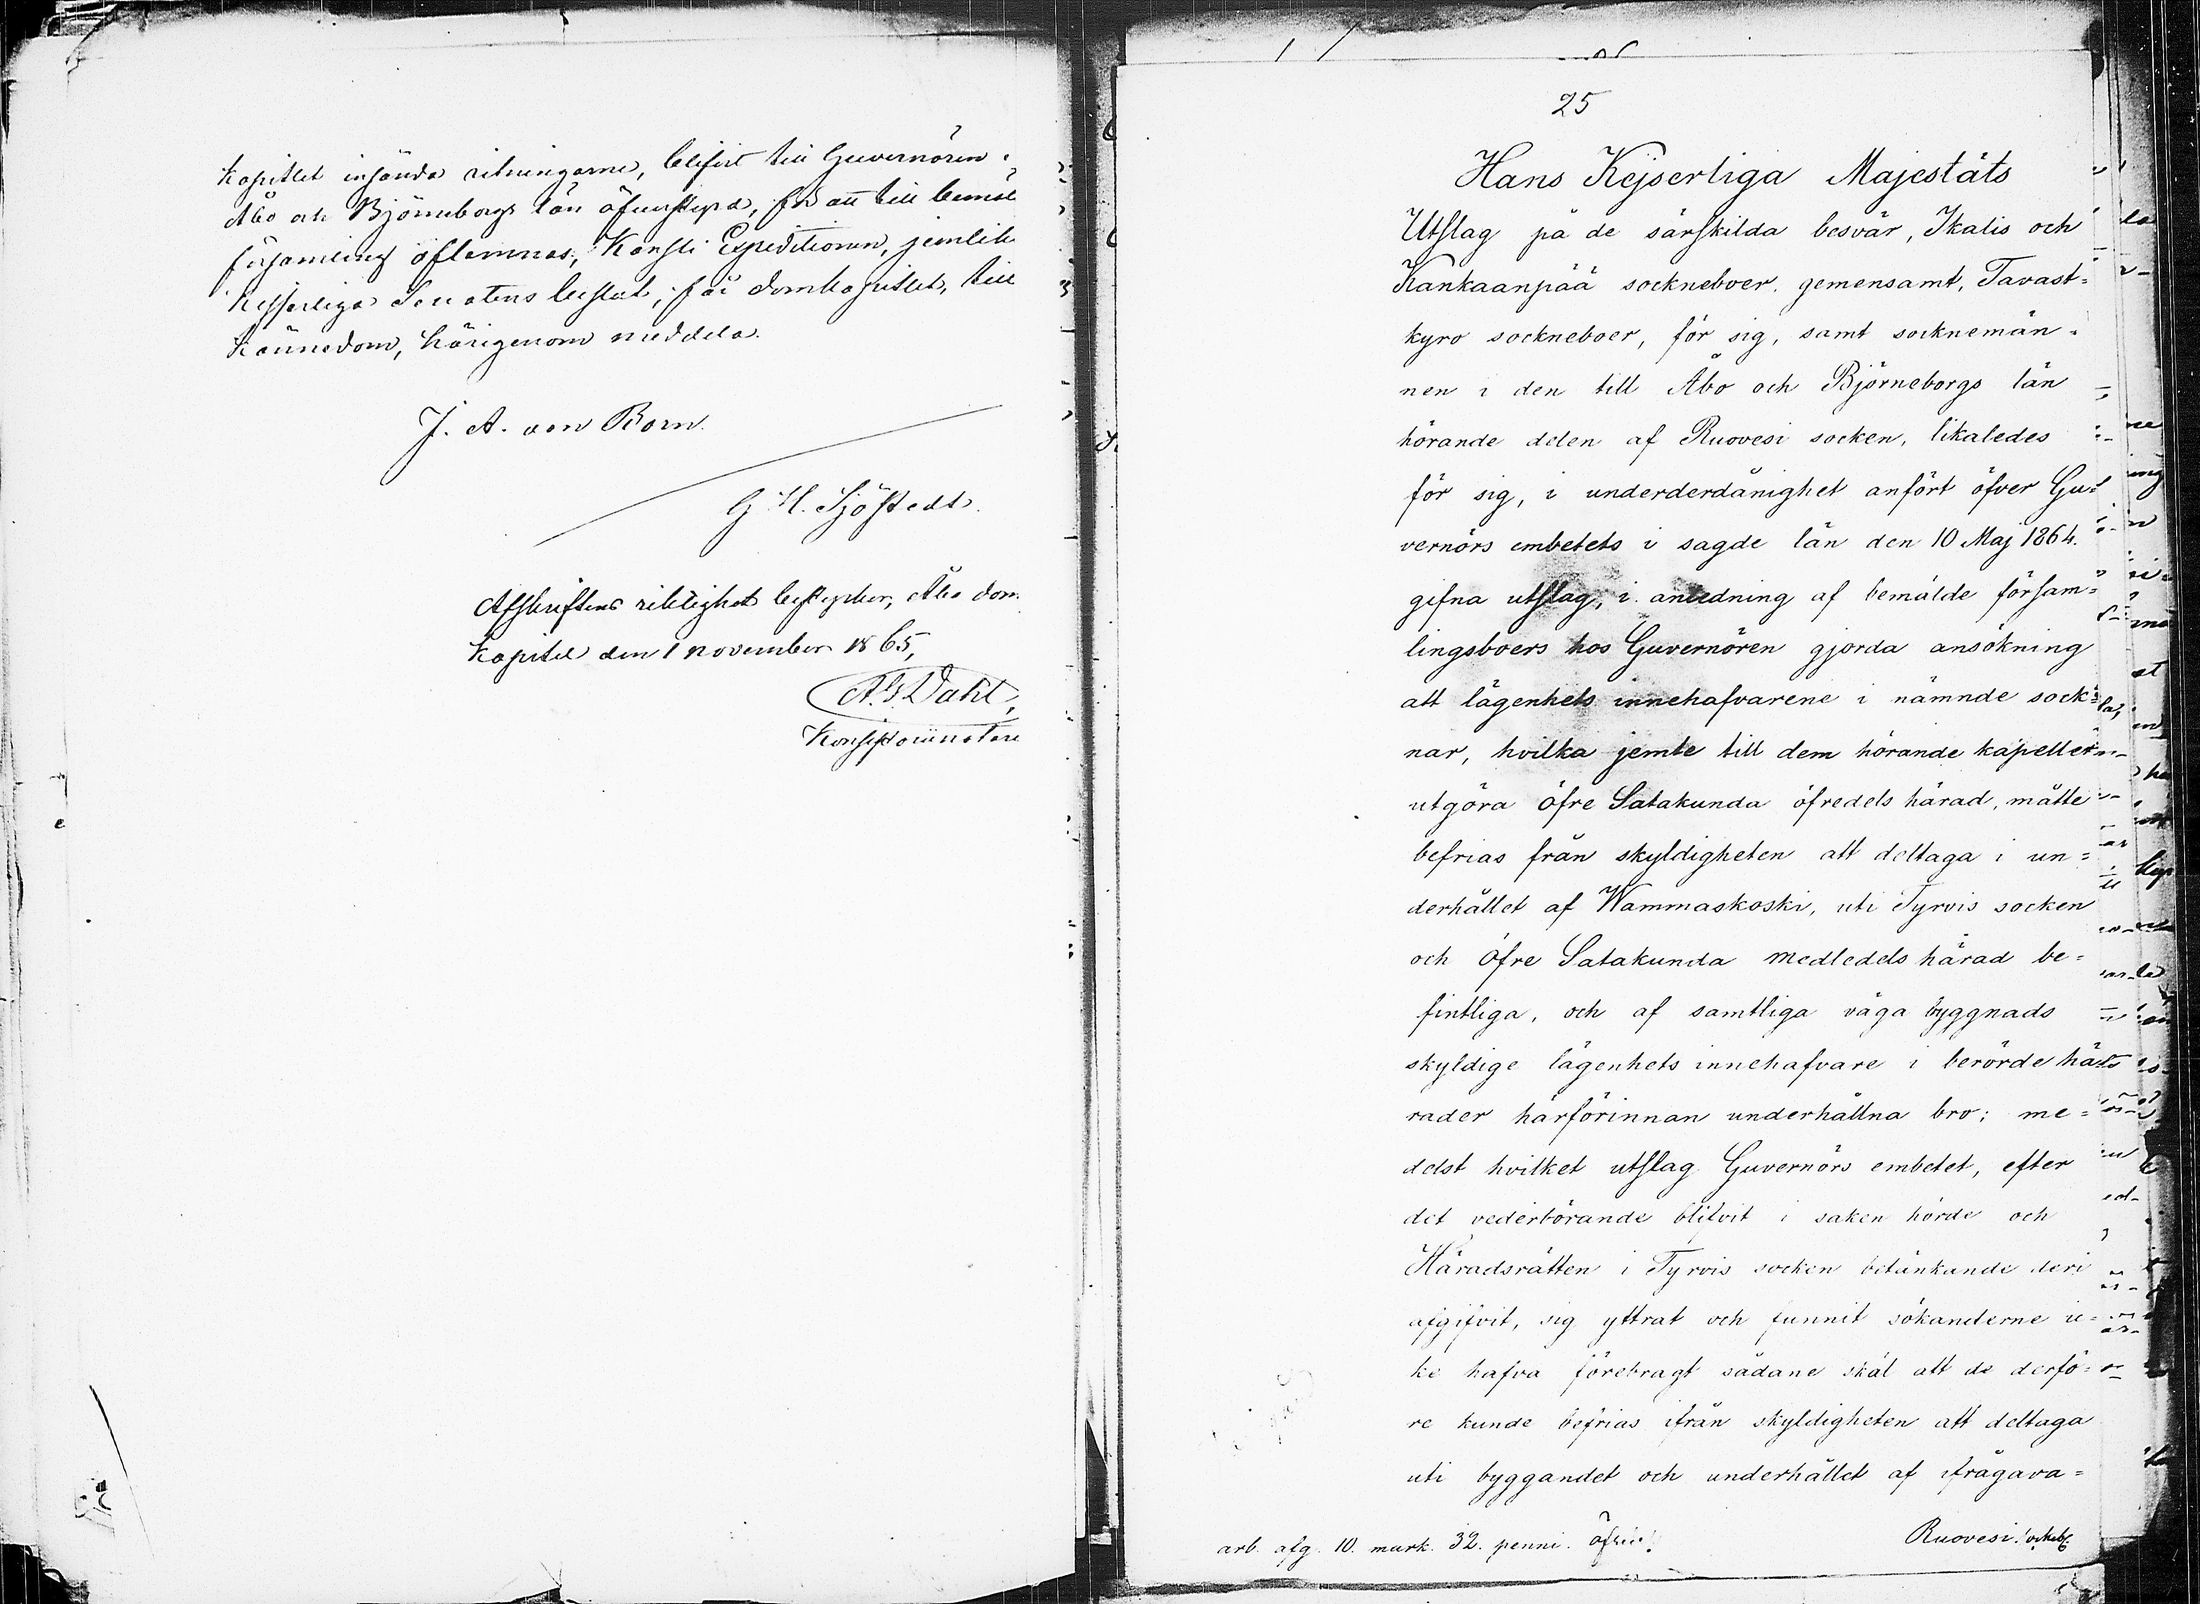 Kapitlet insända ritningarne, blifvit till Guvernören i
Åbo och Björneborgs län öfverstyrd, för att till bemäl
församling öflemnas; Kansli Expeditionen, jemlik
Kejserliga Senatens beslut, får domkapitlet, till
kännedom, härigenom meddela.
J. A. von Born.
G. H. Sjöstedt.
Afskriftens riktighet bestyrker, Åbo dom
Kapitel den 1 november 1865,
A. G. Dahl,
Konsistoriinotarie
25
Hans Kejserliga Majestäts
Utslag på de särskilda besvär, Ikalis och
Kankaanpää sockneboer, gemensamt, Tavast=
kyro sockneboer, för sig, samt socknemän=
nen i den till Åbo och Björneborgs län
hörande delen af Ruovesi socken, likaledes
för sig, i underderdånighet anfört öfver Gu=
vernörs embetets i sagde län den 10 Maj 1864.
gifna utslag, i anledning af bemälde försam=
lingsboers hos Guvernören gjorda ansökning
att lägenhets innehafvarene i nämnde sock=
nar, hvilka jemte till dem hörande kapeller
utgöra öfre Satakunda öfredels härad, måtte
befrias från skyldigheten att deltaga i un=
derhållet af Wammaskoski, uti Tyrvis socken
och Öfre Satakunda medledels härad be=
fintliga, och af samtliga väga byggnads
skyldige lägenhets innehafvare i berörde hä
rader härförinnan underhållna bro; me=
delst hvilket utslag Guvernörs embetet, efter
det vederbörande blifvit i saken hörde och
Häradsrätten i Tyrvis socken betänkande deri
afgifvit, sig yttrat och funnit sökanderne ic=
ke hafva förebragt sådane skäl att de derfö=
re kunde befrias ifrån skyldigheten att deltaga
uti byggandet och underhållet af ifrågava=
arb. afg. 10. mark. 32. penni.
Ruovesi